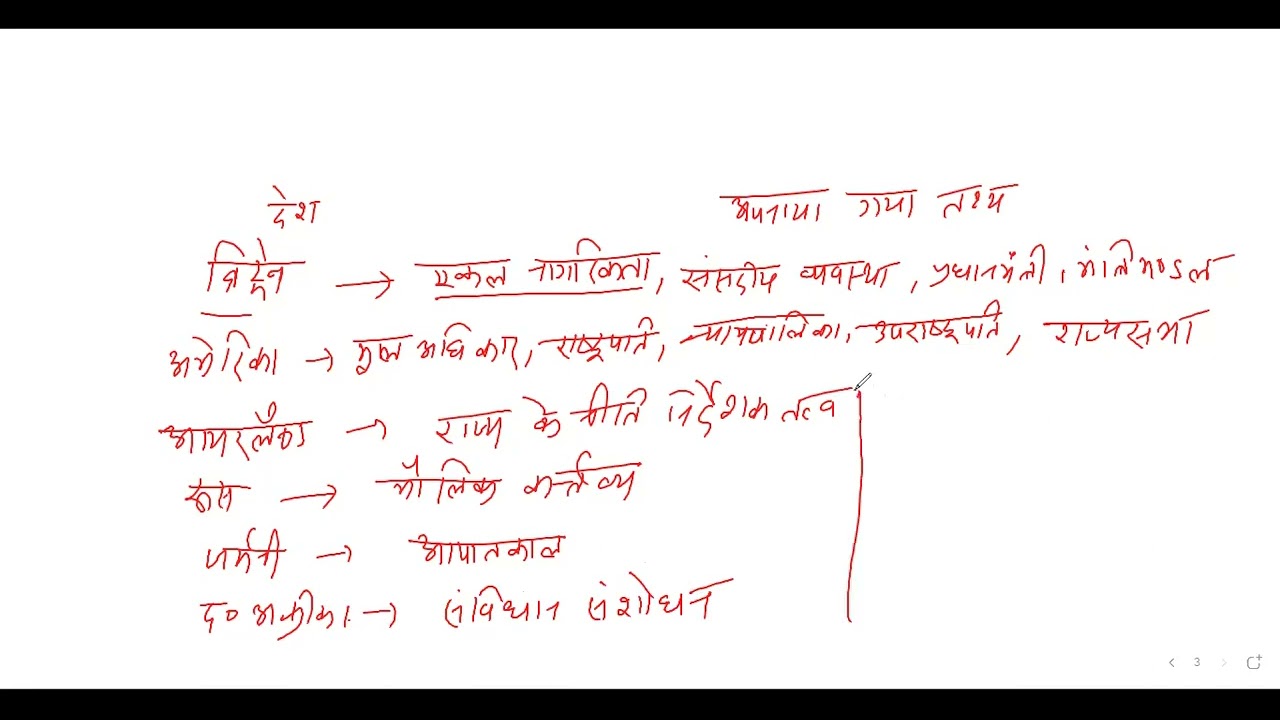 देश अपनाया गया तथ्य
ब्रिटेन → एकल नागरिकता, संसदीय व्यवस्था, प्रधानमंत्री, मंत्रिमण्डल
अमेरिका → मूल अधिकार, राष्ट्रपति, न्यायपालिका, उपराष्ट्रपति, राज्यसभा
आयरलैंड → राज्य के नीति निर्देशक तत्व
रूस → मौलिक कर्त्तव्य
जर्मनी → आपातकाल
द० अफ्रीका → संविधान संशोधन
3